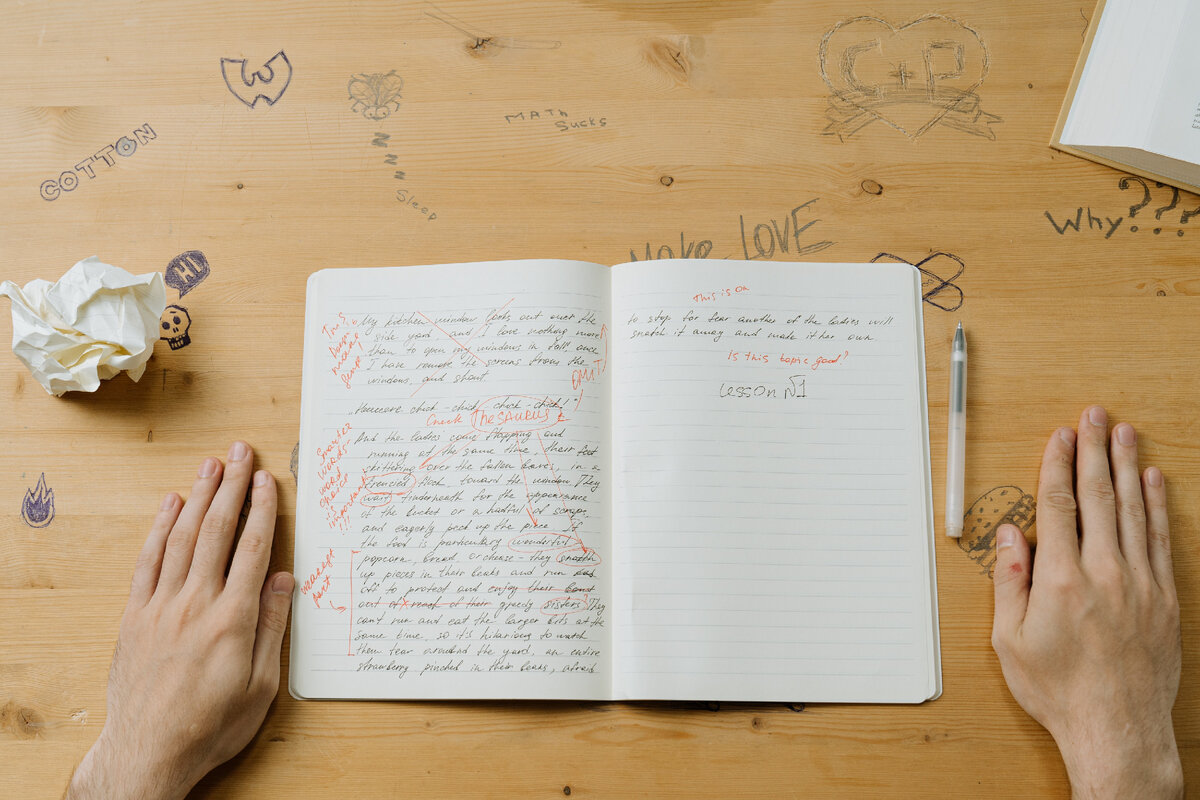 COTTON
W
Z
Z
Z
Sleep
MATH
Sucks
C+P
Make LOVE
Why???
HI
My kitchen window looks out over the
side yard, and I love nothing more
than to open my windows in fall, once
I have remove the screens from the
windows, and shout.
OMIT
chick - chick, chick - chick!"
Check THESAURUS
And the ladies come flapping and
running at the same time, their feet
skittering over the fallen leaves, in a
frenzied flock toward the window. They
wait underneath for the appearance
of the bucket or a hadful of scraps,
and eagerly peck up the piece. If
the food is particulary wonderful
popcorn, bread, or cheese - they snatch
up pieces in their beaks and run
off to protect and enjoy their
out of reach of their greedy sisters. They
can't run and eat the larger bits at the
same time, so it's hilarious to watch
them tear around the yard, an entire
strawberry pinched in their beaks, afraid
Smarter
words-
word
choice
is
important
!!!
weakest
part
This is ok
to stop for fear another of the ladies will
snatch it away and made it her own.
Is this topic good?
Lesson №1